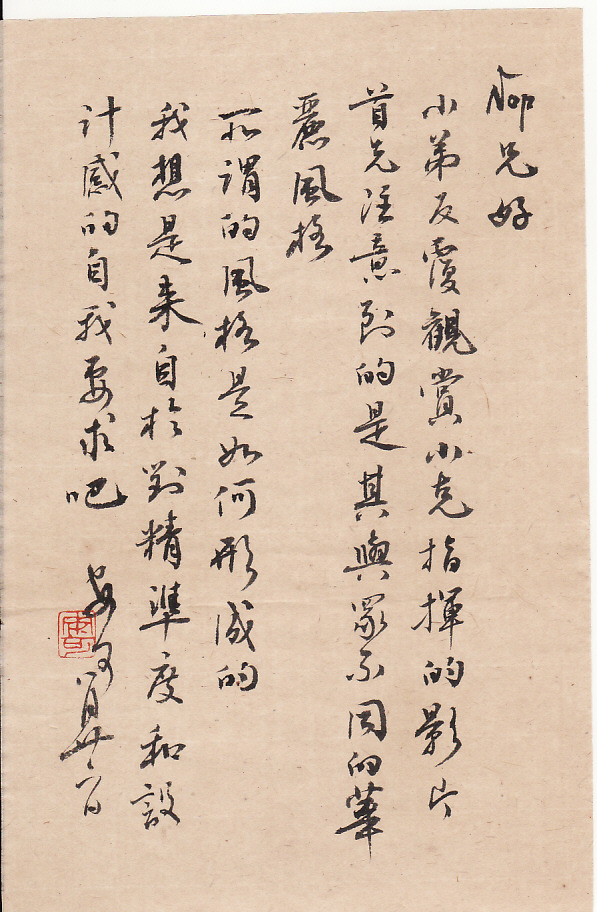 兄好
小弟反覆觀賞小克指揮的影片
首先注意到的是其與眾不同的華
麗風格
所謂的風格是如何形成的
我想是來自於對精準度和設
計感的自我要求吧
八月廿六日